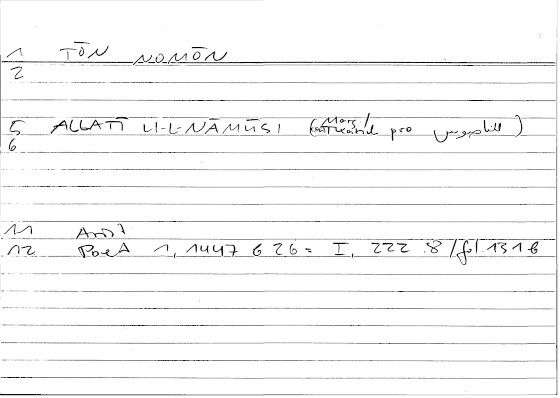 1 TŌN NOMŌN
2
5 ALLATĪ LI-L-NĀMŪSI (Marg./ pro )
6
11 Arist
12 Poet 1, 1447 b 26 = I, 222 8/fol 131b